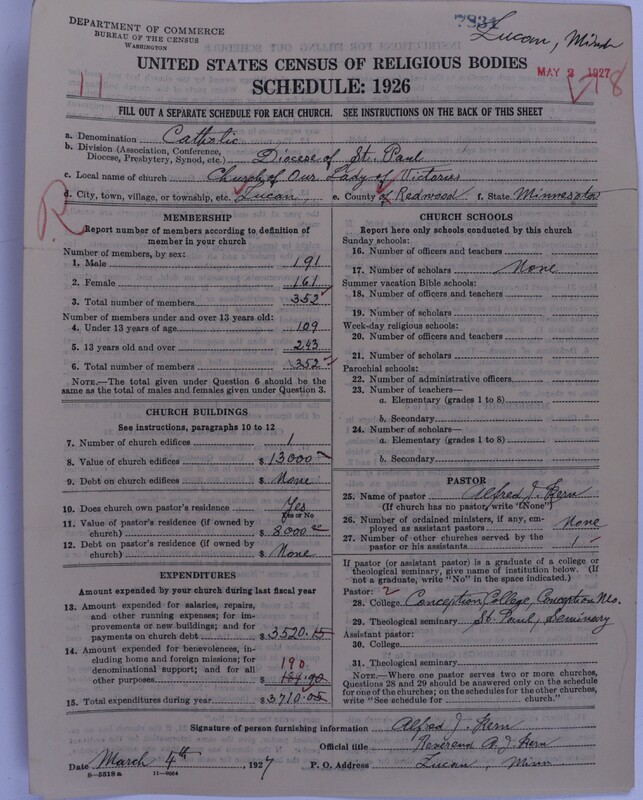 DEPARTMENT OF COMMERCE
BUREAU OF THE CENSUS
WASHINGTON
7834
Lucan, Minn
UNITED STATES CENSUS OF RELIGIOUS BODIES
MAY 3 1927
SCHEDULE: 1926
11
78
FILL OUT A SEPARATE SCHEDULE FOR EACH CHURCH. SEE INSTRUCTIONS ON THE BACK OF THIS SHEET
a. Denomination Catholic
b. Division (Association, Conference, Diocese, Presbytery, Synod, etc.) Diocese of St. Paul
c. Local name of church Church of Our Lady of Victories
d. City, town, village, or township, etc. Lucan e. County of Redwood f. State Minnesota
R
MEMBERSHIP
Report number of members according to definition of
member in your church
Number of members, by sex:
1. Male 191
2. Female 161
3. Total number of members 352
Number of members under and over 13 years old:
4. Under 13 years of age 109
5. 13 years old and over 243
6. Total number of members 352
NOTE.—The total given under Question 6 should be
same as the total of males and females given under Question 3.
CHURCH BUILDINGS
See instructions, paragraphs 10 to 12
7. Number of church edifices 1
8. Value of church edifices $ 13000
9. Debt on church edifices $ None
10. Does church own pastor's residence Yes
Yes or No
11. Value of pastor's residence (if owned by
church) $ 8000
12. Debt on pastor's residence (if owned by
church) $ None
EXPENDITURES
Amount expended by your church during last fiscal year
13. Amount expended for salaries, repairs,
and other running expenses; for im-
provements or new building; and for
payments on church debt $ 3520.15
14. Amount expended for benevolences,
including home and foreign missions; for
denominational support; and for all
other purposes 190
$ 189.90
15. Total expenditures during year $ 3710.05
CHURCH SCHOOLS
Report here only schools conducted by this church
Sunday schools:
16. Number of officers and teachers
17. Number of scholars None
Summer vacation Bible schools:
18. Number of officers and teachers
19. Number of scholars
Week-day religious schools:
20. Number of officers and teachers
21. Number of scholars
Parochial schools:
22. Number of administrative officers
23. Number of teachers—
a. Elementary (grades 1 to 8)
b. Secondary
24. Number of scholars—
a. Elementary (grades 1 to 8)
b. Secondary
PASTOR
25. Name of pastor Alfred J. Kern
(If church has no pastor, write "None")
26. Number of ordained ministers, if any, em-
ployed as assistant pastors None
27. Number of other churches served by the
pastor or his assistants 1
If pastor (or assistant pastor) is a graduate of a college or
theological seminary, give name of institution below. (If
not a graduate, write "No" in the space indicated.)
Pastor: 2
28. College Conception College, Conception Mo.
29. Theological seminary St. Paul, Seminary
Assistant pastor:
30. College
31. Theological seminary
NOTE.—Where one pastor serves two or more churches,
Questions 28 and 29 should be answered only on the schedule
for one of the churches; on the schedules for the other churches,
write "See schedule for church."
Signature of person furnishing information Alfred J. Kern
Official title Reverend A. J. Kern
Date March 4th, 1927 P. O. Address Lucan, Minn
8—5518a 11—9064